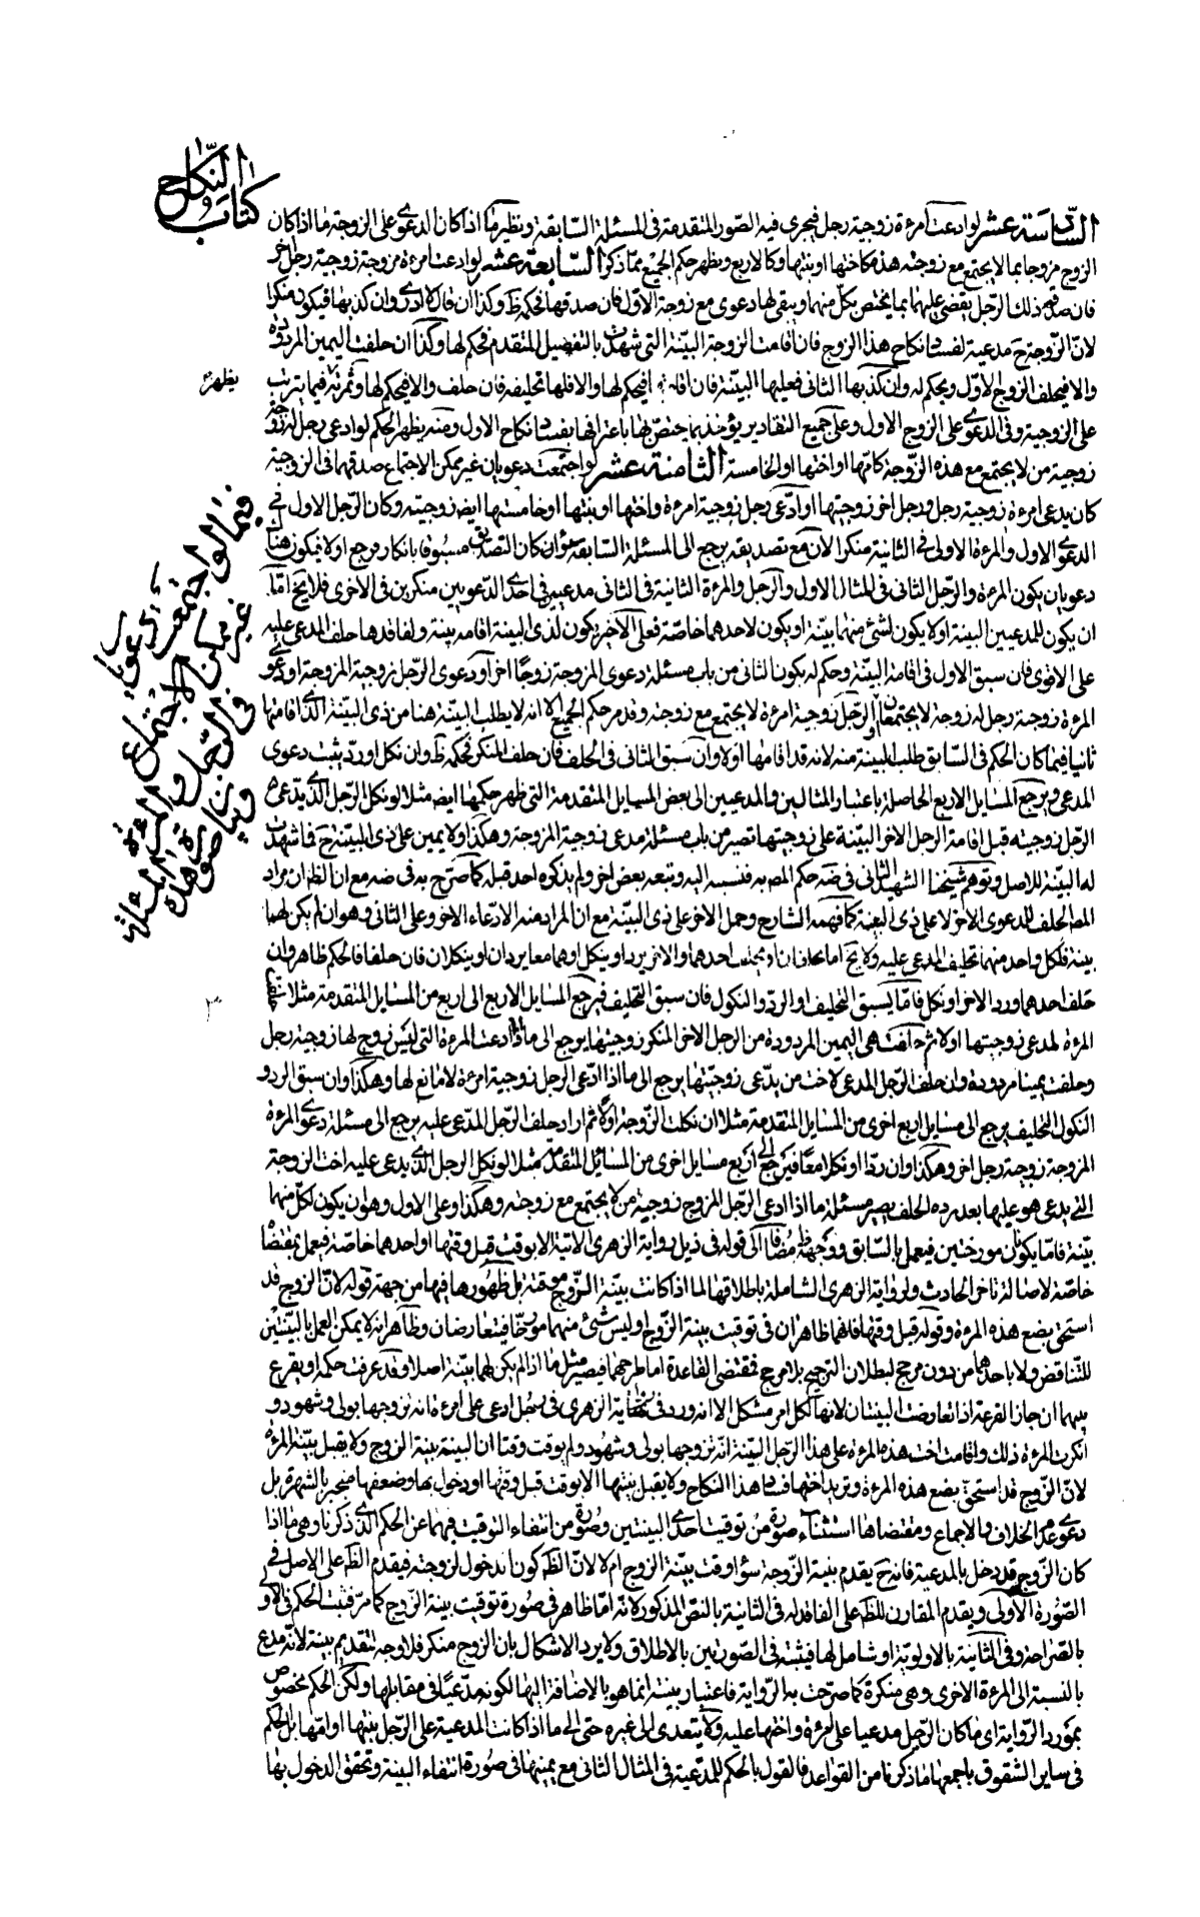 كتاب النكاح
السّادسة عشر لو ادعت امرءة زوجية رجل فيجرى فيه الصّور المتقدمة فى المسئلة السّابقة ونظير ما اذا كان الدعوى على الزوجة ما اذا كان
الزوج مزوجا بما لا يجتمع مع زوجته هذه كاختها او بنتها وكالاربع ويظهر حكم الجميع ممّا ذكر السّابعة عشر لو ادعت امرءة مزوجة زوجية رجل اخر
فان صدقهم ذلك الرّجل يقضى عليهما بما يختص بكلّ منهما ويبقى لها دعوى مع زوجة الاوّل فان صدقها فحكمه ظ وكذا ان قال لا ادرى وان كذبها فيكون منكرا
لانّ الزّوجة ح مدعية لفساد نكاح هذا الزوج فان اقامت الزوجة البيّنة التى شهدت بالتفصيل المتقدم فحكم لها وكذا ان حلفت اليمين المردودة
والا فيحلف الزوج الاوّل ويحكم له وان كذبها الثانى فعليها البيّنة فان اقامت فيحكم لها والا فلها تحليفه فان حلف والا فيحكم لها وثمرته فيما يترتب
يظهر
على الزوجية وفى الدعوى على الزوج الاول وعلى جميع التقادير يؤخذ بما يختصّ بها باعترافها بفساد نكاح الاول ومنه يظهر الحكم لو ادعى رجل له زوجة
زوجية من لا يجتمع مع هذه الزّوجة كامّها او اختها او الخامسة الثامنة عشر لو اجتمعت دعويان غير ممكن الاجتماع صدقهما فى الزوجية
كان يدعى امرءة زوجية رجل ورجل اخر زوجيتها او ادّعى رجل زوجية امرءة واختها او بنتها او خامستها ايضا زوجيته وكان الرّجل الاول فى
الدعوى الاول والمرءة الاولى فى الثانية منكرا لان مع تصديقه يرجع الى المسئلة السّابقة سواء كان التصديق مسبوقا بانكار ورجع او لا فيكون هنا
دعويان يكون المرءة والرّجل الثانى فى المثال الاول والرجل والمرءة الثانية فى الثانى مدعيين فى احدى الدّعويين منكرين فى الاخرى فلا يخ امّا
ان يكون للمدعيين البينة او لا يكون لشئ منهما بيّنة او يكون لاحدهما خاصّة فعلى الآخر يكون لذى البينة اقامة بينة ولفاقدها حلف المدعى عليه
على الاقوى فان سبق الاول فى اقامة البيّنة وحكم له يكون الثانى من باب مسئلة دعوى المزوجة زوجًا اخر او دعوى الرّجل زوجية المزوجة او دعوى
المرءة زوجية رجل له زوجة لا يجتمعان او الرّجل زوجية امرءة لا يجتمع مع زوجته وقدم حكم الجميع الا انه لا يطلب البيّنة هنا من ذى البيّنة الذى اقامتها
ثانيا فيما كان الحكم فى السّابق طلب البينة منه لانه قد اقامها اولا وان سبق الثانى فى الحلف فان حلف المنكر فحكمه ظ وان نكل او ردّ يثبت دعوى
المدعى ويرجع المسايل الاربع الحاصلة باعتبار المثالين والمدعيين الى بعض المسايل المتقدمة التى ظهر حكمها ايضا مثلا لو نكل الرّجل الذى يدّعى
الرّجل زوجيته قبل اقامة الرجل الاخر البيّنة على زوجيتها تصير من باب مسئلة مدعى زوجية المزوجة وهكذا ولا يمين على ذى البيّنة ح فما شهدت
له البيّنة للاصل وتوهم شيخنا الشهيد الثانى فى ضه حكم المص به فنسبه اليه وتبعه بعض اخر ولم يذكره احد قبله كما صرّح به فى ضه مع ان الظ ان مراد
المص الحلف للدعوى الاخر لا على ذى البينة كما فهمه الشارح وحمل الاخر على ذى البيّنة مع ان المراد منه الادّعاء الاخر وعلى الثانى وهو ان لم يكن لهما
بينة فلكل واحد منهما تحليف المدعى عليه ولا يخ اما يحلفان او يحلف احدهما والاخر يرد او ينكل او هما معا يردان او ينكلان فان حلفا فالحكم ظاهر وان
حلف احدهما ورد الاخر او نكل فامّا يسبق التحليف او الردّ والنكول فان سبق التحليف فيرجع المسايل الاربع الى اربع من المسايل المتقدمة مثلا
المرءة لمدعى زوجيتها اولا ثم حلفت هى اليمين المردودة من الرجل الاخر المنكر زوجيتها يرجع الى ما اذا ادعت المرءة التى ليس زوج لها زوجية رجل
وحلفت يمينا مردودة وان حلف الرّجل المدعى لاخت من يدّعى زوجيّتها يرجع الى ما اذا ادّعى الرجل زوجية امرءة لا مانع لها وهكذا وان سبق الرد و
النكول التحليف يرجع الى مسايل اربع اخرى من المسايل المتقدمة مثلا ان نكلت الزّوجة اوّلا ثم اراد حلف الرّجل المدّعى عليه يرجع الى مسئلة دعوى المرءة
المزوجة زوجية رجل اخر وهكذا وان ردّا او نكلا معًا فيرجع الى اربع مسايل اخرى من المسائل المتقدّمة مثلا لو نكل الرجل الذى يدعى عليه اخت الزوجة
التى يدعى هو عليها بعد رده الحلف يصير مسئلة ما اذا ادعى الرّجل المزوج زوجية من لا يجتمع مع زوجته وهكذا وعلى الاول وهو ان يكون لكلّ منهما
بيّنة فامّا يكونان مورختين فيعمل بالسّابق ووجهه ظ مضافا الى قوله فى ذيل رواية الزهرى الاتية الا بوقت قبل وقتها او احدهما خاصّة فيعمل بمقتضا
خاصّة لاصالة تاخر الحادث ولرواية الزهرى الشاملة باطلاقها لما اذا كانت بيّنة الزّوج موقتة بل ظهورها فيها من جهة قوله لانّ الزوج قد
استحق بضع هذه المرءة وقوله قبل وقتها فانهما ظاهران فى توقيت بينة الزّوج او ليس شئ منهما مورّخا فيتعارضان وظاهر انه لا يمكن العمل بالبيّنتين
للتّناقض ولا باحدهما من دون مرجح لبطلان الترجيح بلا مرجح فمقتضى القاعدة اما طرحهما فيصير مثل ما اذا لم يكن لهما بيّنة اصلا وقد عرفت حكمه او يقرع
بينهما ان جاز القرعة اذا تعارضت البينتان لانها لكل امر مشكل الا انه ورد فى رواية الزهرى فى رجل ادعى على امرءة انه تزوجها بولى وشهود و
انكرت المرءة ذلك واقامت اخت هذه المرءة على هذا الرّجل البيّنة انّه تزوجها بولى وشهود ولم يوقت وقتا ان البينة بينة الزوج ولا يقبل بيّنة المرءة
لانّ الزّوج قد استحقّ بضع هذه المرءة وتريد اختها فساد هذا النكاح ولا يقبل بيّنتها الا بوقت قبل وقتها او دخول بها وضعفها منجبر بالشهرة بل
دعوى عدم الخلاف بل الاجماع ومقتضاها استثناء صورة من توقيت احدى البينتين وصورة من انتفاء التوقيت فيهما عن الحكم الذى ذكرنا وهى ما اذا
كان الزّوج قد دخل بالمدعية فانه ح يقدم بنية الزّوجة سواء وقت بيّنة الزوج ام لا لانّ الظ كون ان دخول لزوجته فيقدم الظ على الاصل فى
الصّورة الاولى ويقدم المقارن للظ على الفاقد له فى الثانية بالنصّ المذكور لانّه امّا ظاهر فى صورة توقيت بينة الزّوج كما مرّ فثبت الحكم فى الاولى
بالصّراحة وفى الثانية بالاولويّة او شامل لها فيثبته فى الصّورتين بالاطلاق ولا يرد الاشكال بان الزوج منكر فلا وجه لتقديم بينة لانّه مدع
بالنسبة الى المرءة الاخرى وهى منكرة كما صرّحت به الرّواية فاعتبار بينته انما هو بالاضافة اليها لكونه مدّعيًا فى مقابلها ولكن الحكم مخصوص
بمورد الرّواية اى ما كان الرّجل مدعيا على امرءة واختها عليه ولا يتعدى الى غيره حتى الى ما اذا كانت المدعية على الرّجل بنتها او امّها بل الحكم
فى ساير الشقوق باجمعها ما ذكرنا من القواعد فالقول بالحكم للمدّعية فى المثال الثانى مع يمينها فى صورة انتفاء البينة وتحقق الدخول بها
فيما لو اجتمعت دعويان
غير ممكن الاجتماع
فى الرّجل والمرءة
وبيان صورة هذه المسئلة